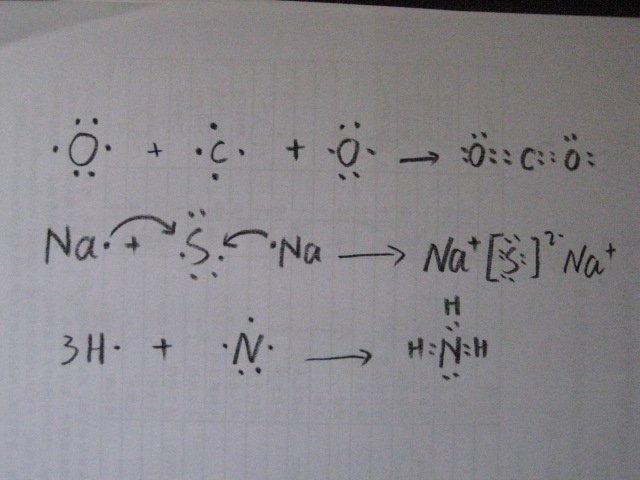 ·Ö̤· + ·Ċ̣· + ·Ö̤· → :Ö::C::Ö:
Na· + ·S̤̈· ·Na → Na⁺[:S̤̈:]²⁻Na⁺
3H· + ·Ṅ̤· → H:N̤̈:H
H